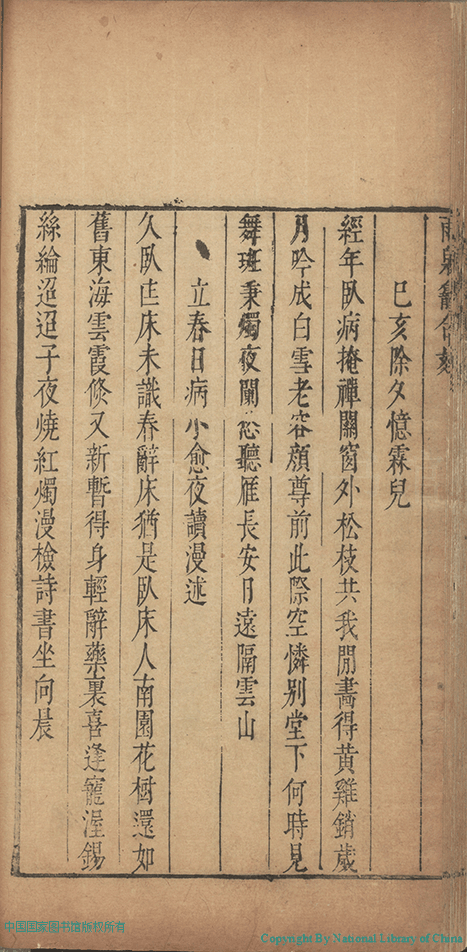 己亥除夕憶霖兒
經年臥病掩禪關窗外松枝共我閒畵得黄雞銷歲
月吟成白雪老容顔尊前此際空憐别堂下何時見
舞斑秉燭夜闌愁聽雁長安日遠隔雲山
立春日病小愈夜讀漫述
久臥匡床未識春辭床猶是臥床人南園花樹還如
舊東海雲霞倐又新暫得身輕辭藥裹喜逢寵渥錫
絲綸迢迢子夜燒紅燭漫檢詩書坐向晨
中国国家图书馆版权所有
Copyright By National Library of China